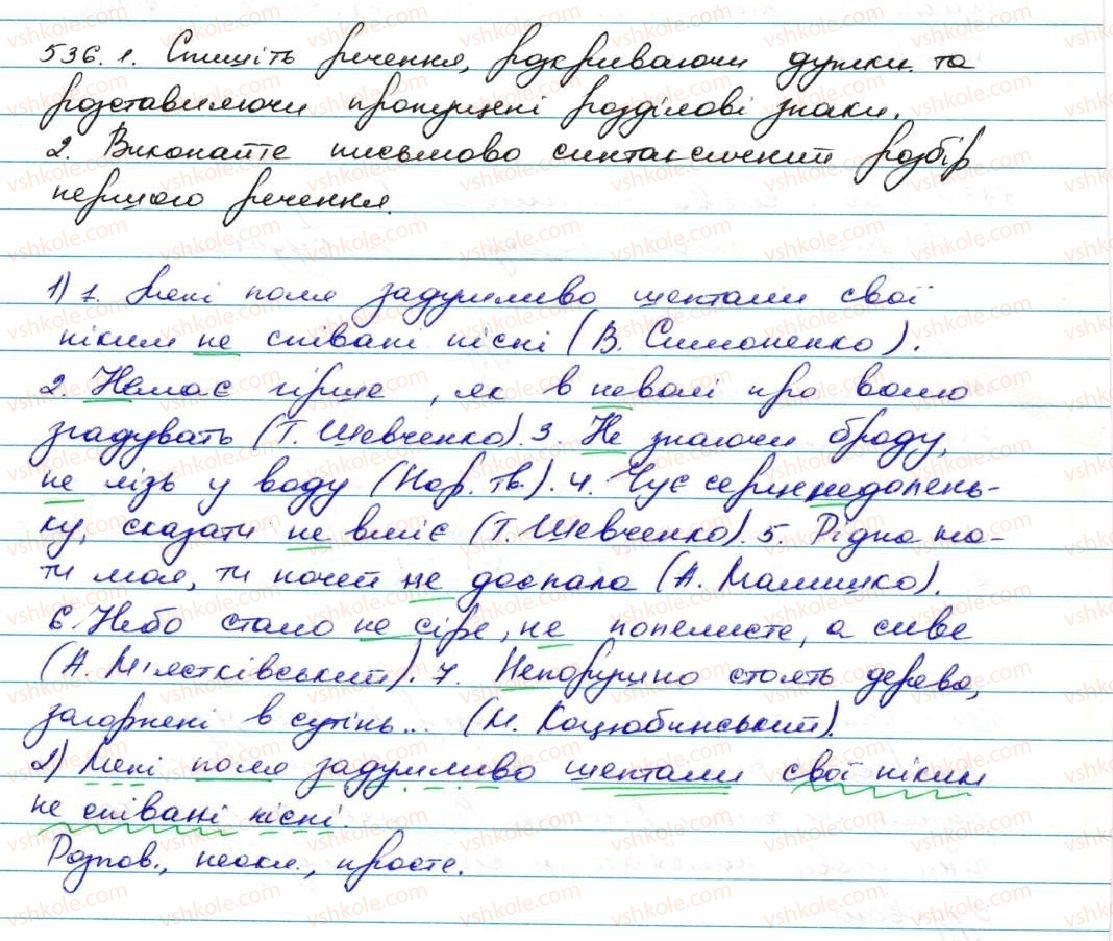 536. 1. Спишіть речення, розкриваючи дужки та
розставляючи пропущені розділові знаки.
2. Виконайте письмово синтаксичний розбір
першого речення.
1) 1. Мені поля задумливо шептали свої
ніким не співані пісні (В. Симоненко).
2. Немає гірше, як в неволі про волю
згадувать (Т. Шевченко). 3. Не знаючи броду,
не лізь у воду (Нар. тв.). 4. Чує серце недолень-
ку, сказати не вміє (Т. Шевченко). 5. Рідна ма-
ти моя, ти ночей не доспала (А. Малишко).
6. Небо стало не сіре, не попелисте, а сиве
(А. М'ястківський). 7. Непорушно стоять дерева,
загорнені в сутінь... (М. Коцюбинський).
2) Мені поля задумливо шептали свої ніким
не співані пісні.
Розпов., неокл., просте.